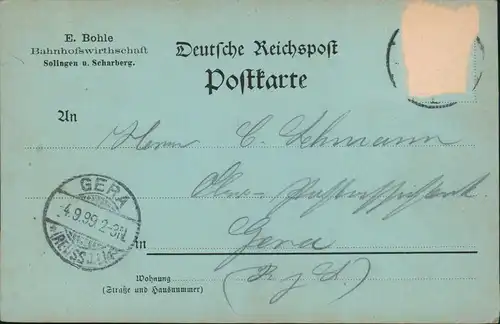 E. Bohle
Bahnhofswirthschaft
Solingen u. Scharberg.
Deutsche Reichspost
Postkarte
An
Herrn C. Lehmann
Ober-Postassistent
GERA
4.9.99. 2-3N.
(REUSS) J.L.
in Gera
(R. j. L.)
Wohnung
(Straße und Hausnummer)